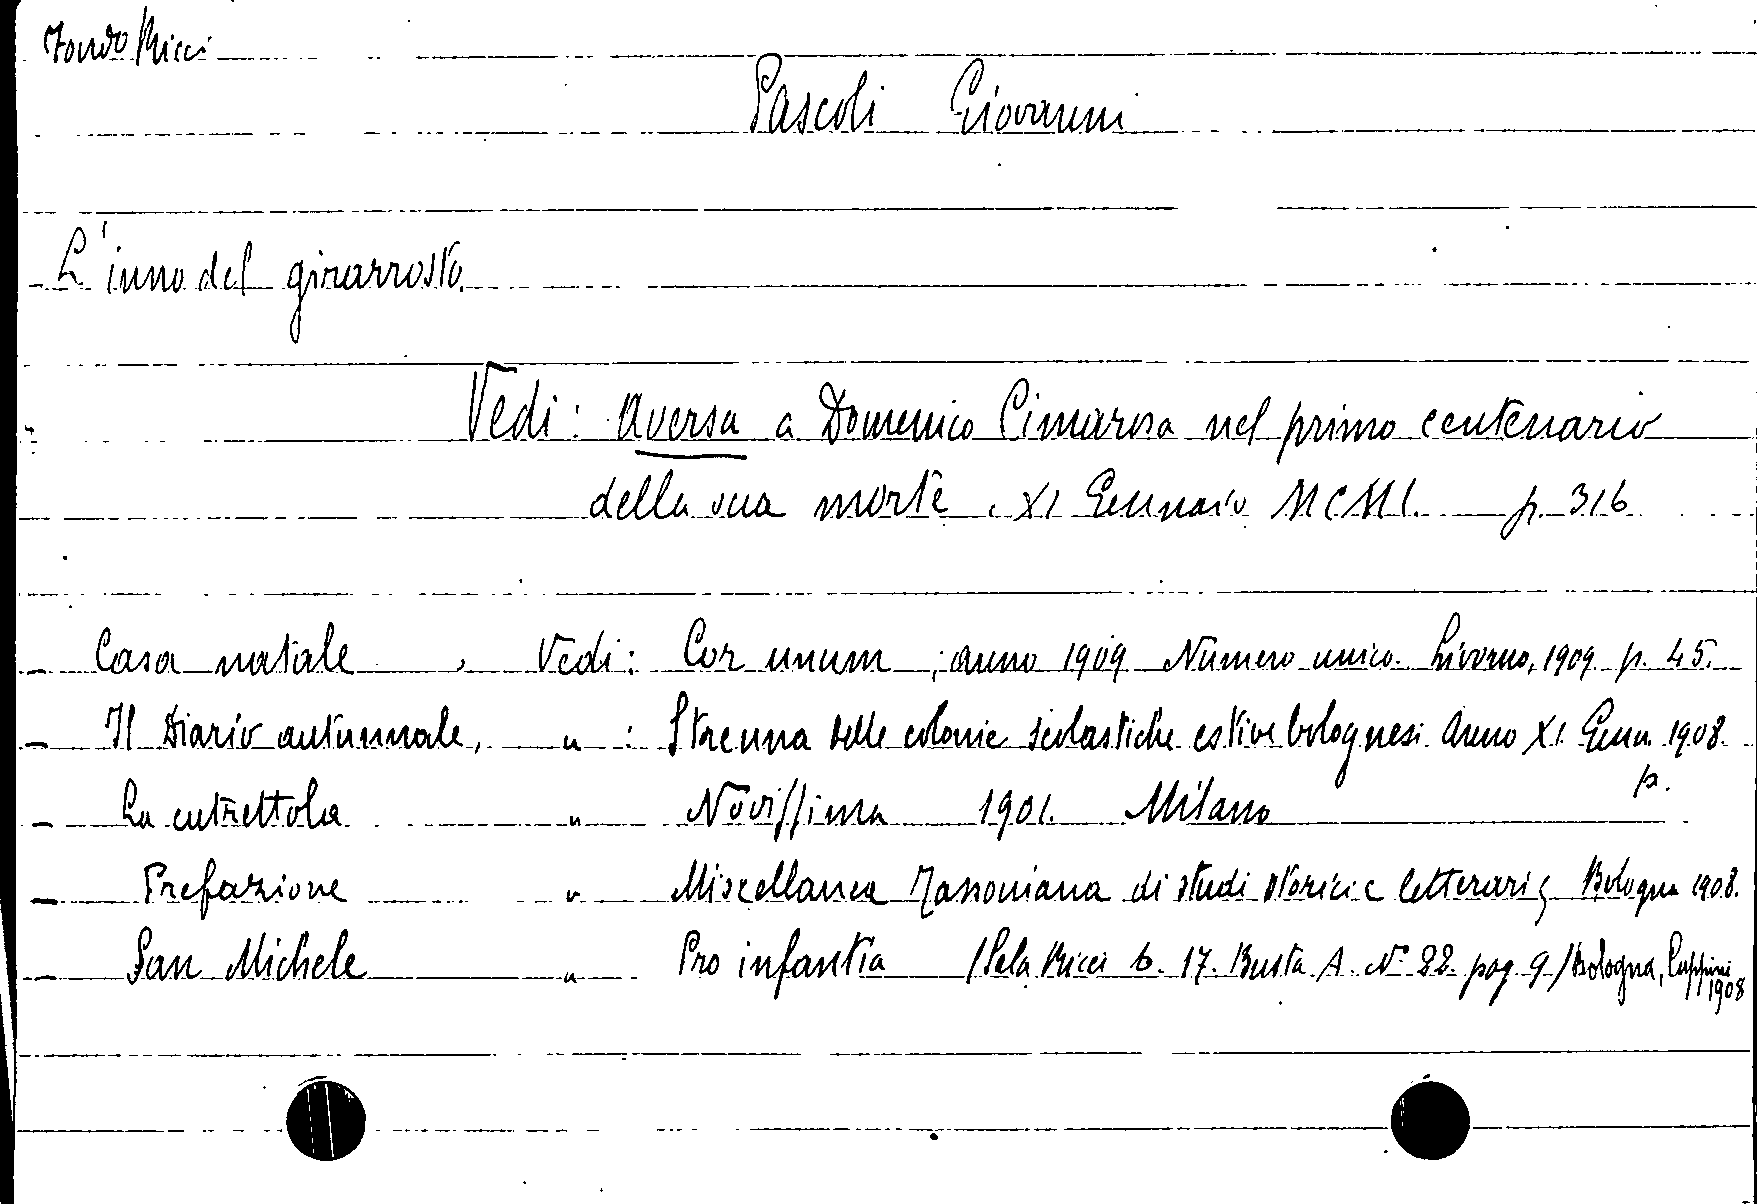 Fondo Ricci
Pascoli Giovanni
L'inno del girarrosto.
Vedi: Aversa a Domenico Cimarosa nel primo centenario
della sua morte. XI Gennaio MCMI. p. 316
- Casa natale, Vedi: Cor unum; anno 1909 Numero unico. Livorno, 1909 p. 45.
- Il Diario autunnale, " : Strenna delle colonie scolastiche estive bolognesi Anno XI. Genn. 1908.
p.
- La cutrettola " Novissima 1901. Milano
- Prefazione " Miscellanea Tassoniana di studi storici e letterari, Bologna 1908.
- San Michele " Pro infantia (Sala Ricci b. 17. Busta A. N° 22. pag. 9) Bologna, Cuppini 1908